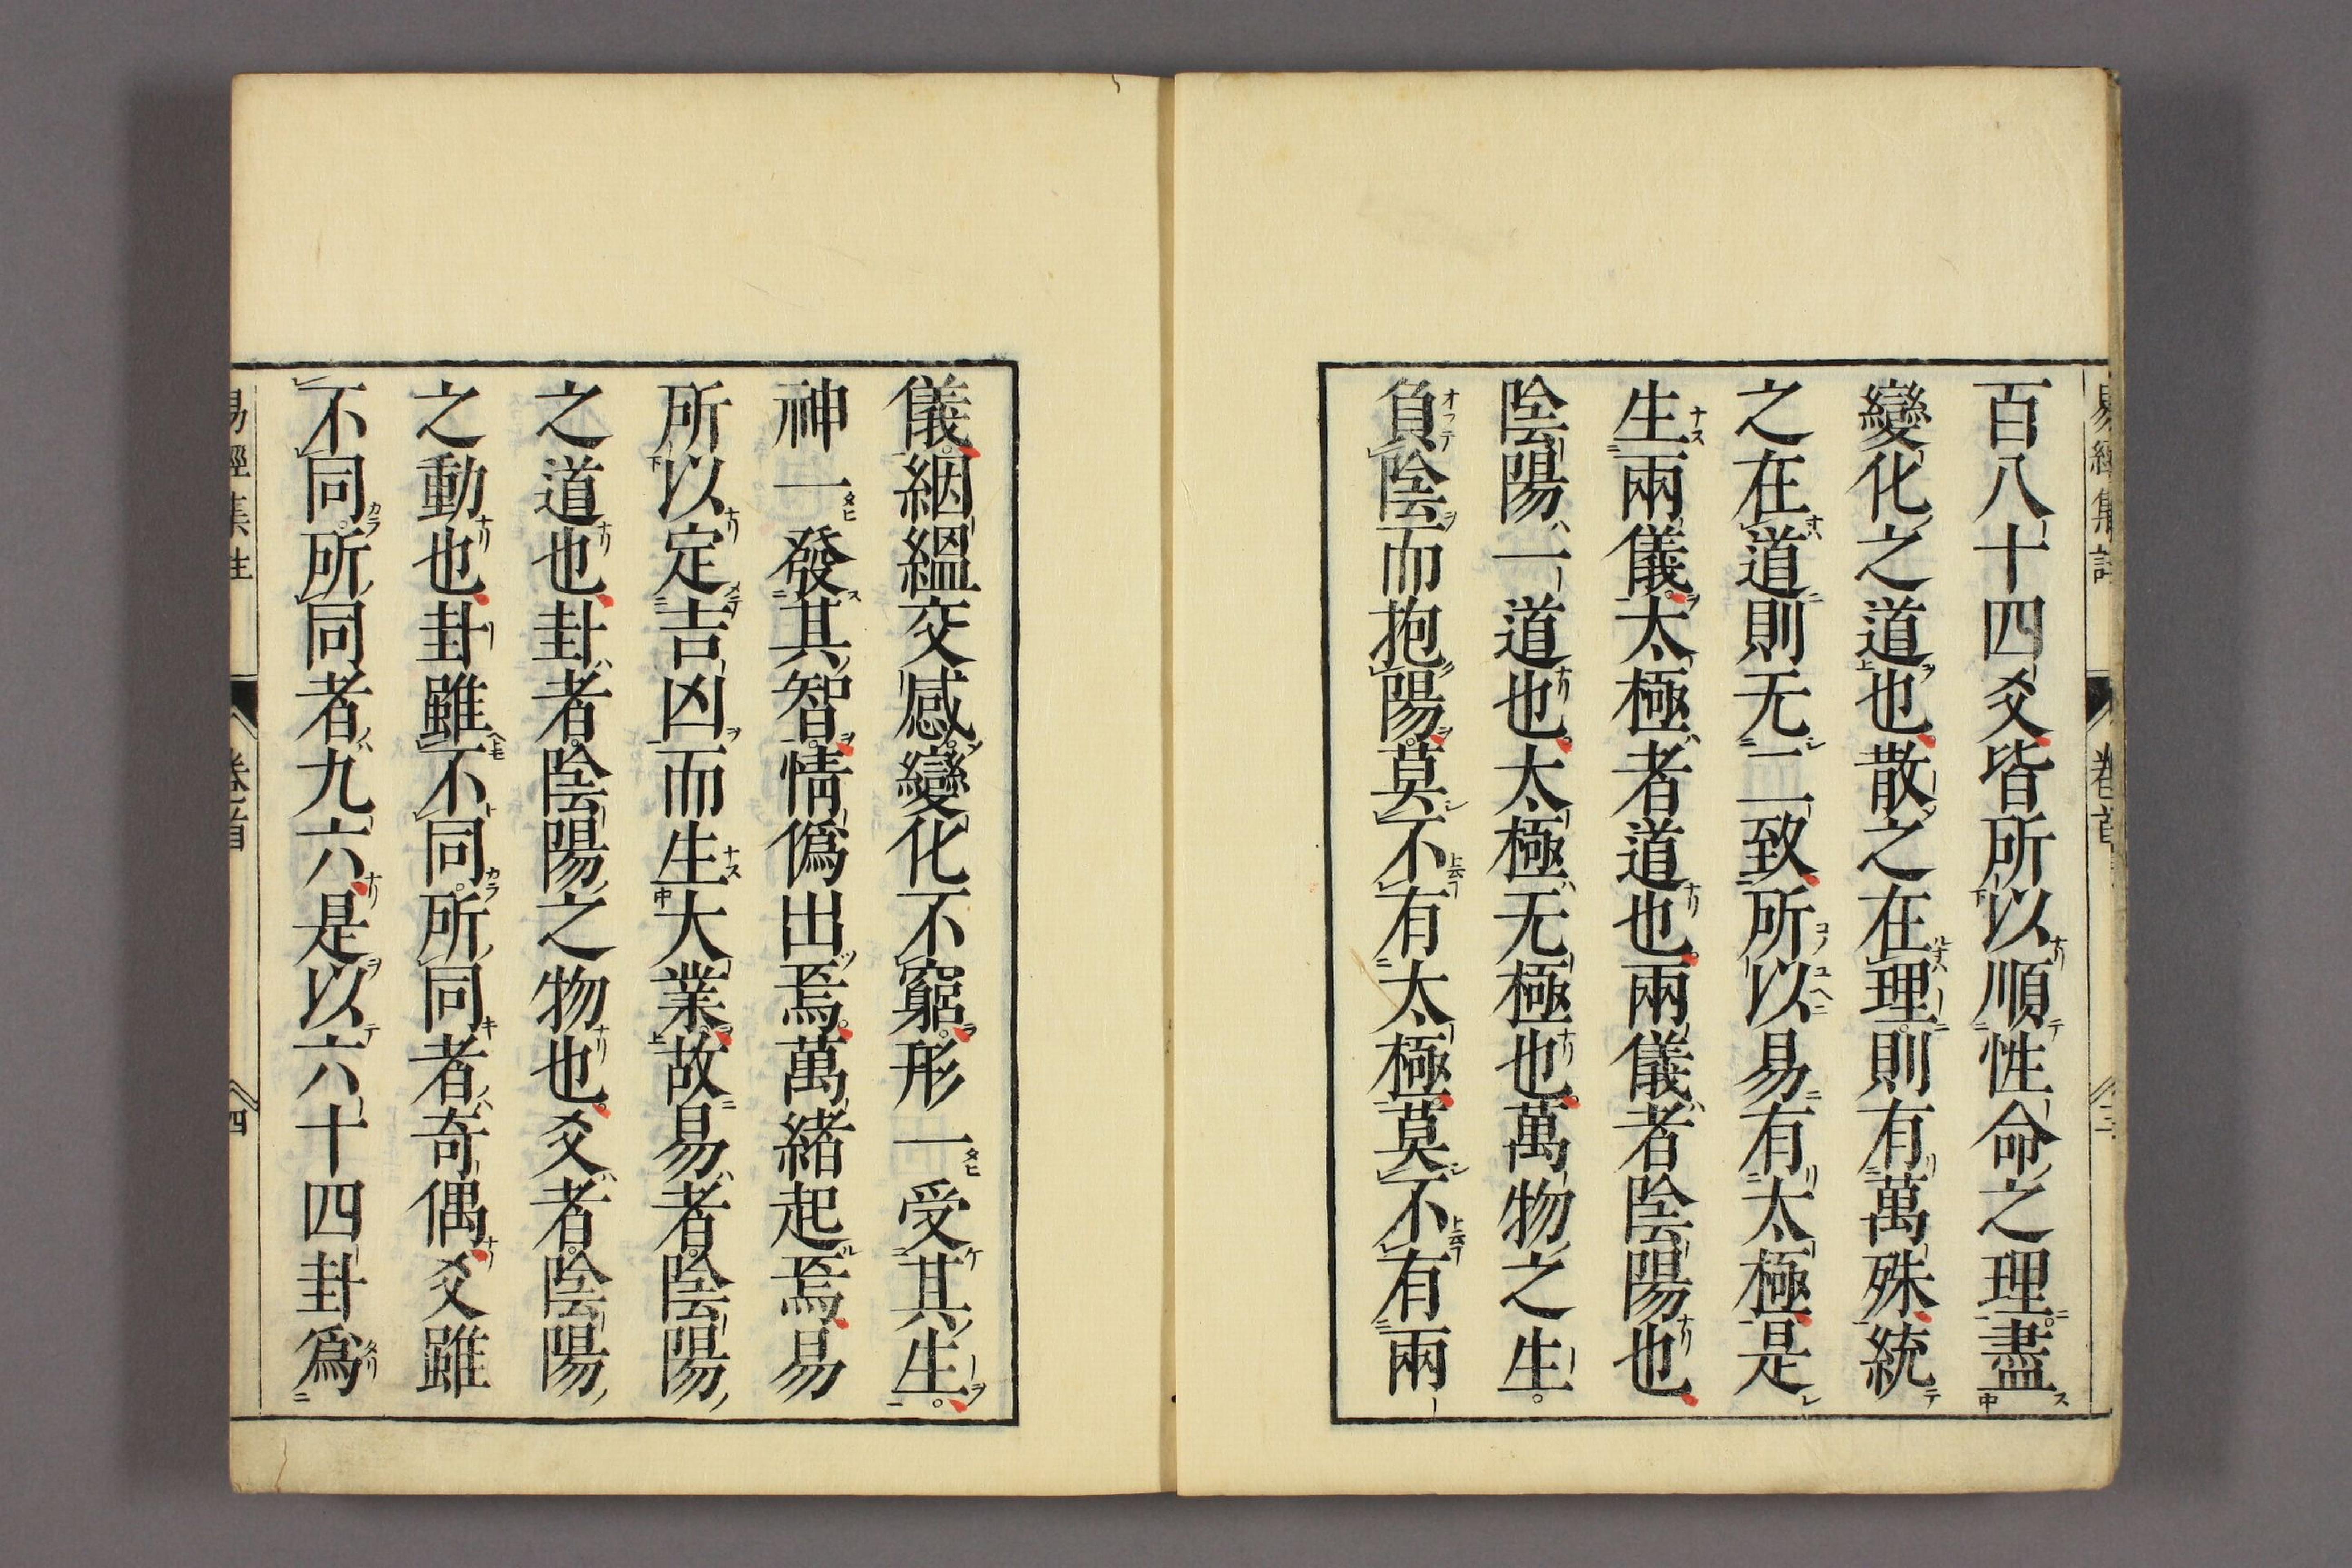 百八十四爻皆所以順性命之理盡
變化之道也散之在理則有萬殊統
之在道則无二致所以易有太極是
生兩儀太極者道也兩儀者陰陽也
陰陽一道也太極无極也萬物之生
負陰而抱陽莫不有太極莫不有兩
儀絪縕交感變化不窮形一受其生
神一發其智情僞出焉萬緒起焉易
所以定吉凶而生大業故易者陰陽
之道也卦者陰陽之物也爻者陰陽
之動也卦雖不同所同者奇偶爻雖
不同所同者九六是以六十四卦爲
易經集註 卷首 四